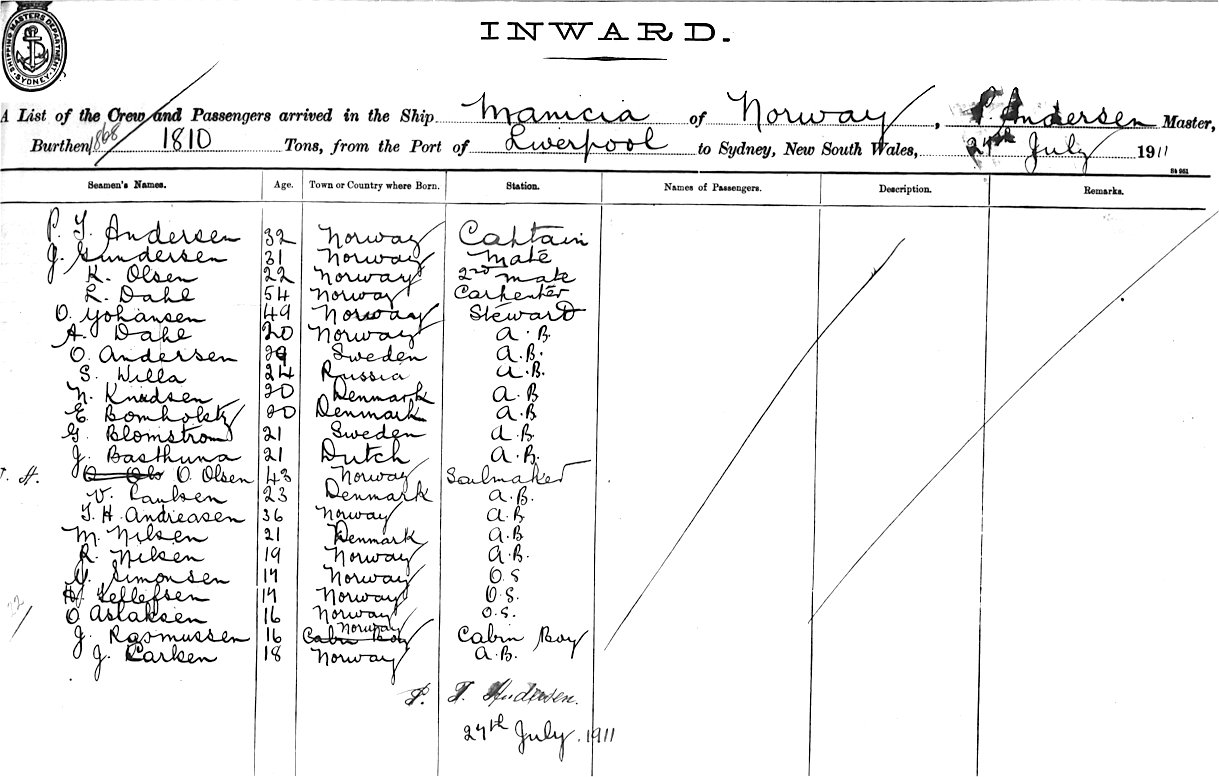 SHIPPING MASTERS DEPARTMENT SYDNEY
INWARD.
A List of the Crew and Passengers arrived in the Ship Manicia of Norway, P. Andersen Master,
Burthen 1868 1810 Tons, from the Port of Liverpool to Sydney, New South Wales, 27th July 1911
St 951
Seamen's Names. Age. Town or Country where Born. Station. Names of Passengers. Description. Remarks.
P. T. Andersen 32 Norway Captain
J. Gundersen 31 Norway Mate
K. Olsen 22 Norway 2nd Mate
L. Dahl 54 Norway Carpenter
O. Yohansen 49 Norway Steward
A. Dahl 20 Norway A.B.
O. Andersen 29 Sweden A.B.
S. Willa 24 Russia A.B.
N. Knudsen 20 Denmark A.B
E. Bomholtz 20 Denmark A.B
G. Blomstrom 21 Sweden A.B.
J. Basthuna 21 Dutch A.B.
O. Olsen 43 Norway Sailmaker
V. Paulsen 23 Denmark A.B.
T. H. Andreasen 36 Norway A.B
M. Nilsen 21 Denmark A.B
R. Nilsen 19 Norway A.B.
Y. Simonsen 17 Norway O.S
H. Tellefsen 17 Norway O.S.
O Aslaksen 16 Norway O.S.
22
J. Rasmussen 16 Cabin Boy Norway Cabin Boy
J. Carlsen 18 Norway A.B.
P. T. Andersen.
27th July. 1911